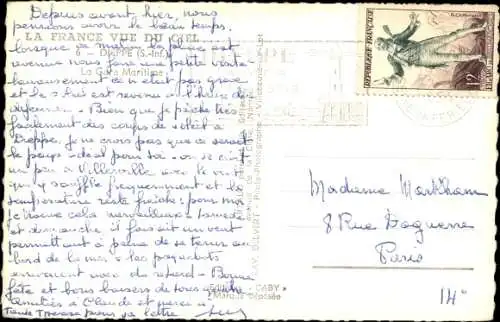 Depuis avant hier, nous
pensions avoir le beau temps
LA FRANCE VUE DU CIEL
lorsque ce matin la pluie est
DIEPPE (S.-Inf.)
revenue nous faire une petite visite
La Gare Maritime
heureusement ce n'était pas grave
et le soleil est revenu à l'heure du
déjeuner - Bien que je pèche très
facilement des coups de soleil à
Dieppe, je ne crois pas que ce serait
le pays idéal pour toi - on se croit
un peu à Villerville avec le vent
qui y souffle fréquemment et la
température reste fraîche : pour moi
je trouve cela merveilleux - samedi
et dimanche il faisait un vent
permettant à peine de se tenir au
bord de la mer - les paquebots
arrivaient avec du retard - Bonne
fête et bons baisers de tous
amitiés à Claude et merci à
Tante Thérèse pour sa lettre
RÉPUBLIQUE FRANÇAISE
12
Madame Markham
8 Rue Daguerre
Paris
14e
CABY »
Marque Déposée